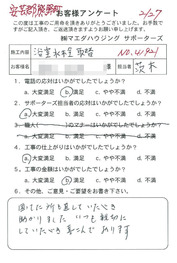 安芸郡熊野町
お客様アンケート
2/27
この度は工事のご用命を頂きありがとうございました。お手数です
がご記入頂き、ご返送頂きますようお願い申し上げます。
㈱マエダハウジング サポーターズ
NO.41921
工事内容 浴室水栓取替 担当者 茨木
1. 電話の応対はいかがでしたでしょうか?
a.大変満足 b.満足 c.やや不満 d.不満
2. サポーターズ担当者の応対はいかがでしたでしょうか?
a.大変満足 b.満足 c.やや不満 d.不満
a.大変満足 b.満足 c.やや不満 d.不満
4. 工事の仕上がりはいかがでしたでしょうか?
a.大変満足 b.満足 c.やや不満 d.不満
5. 工事の金額はいかがでしたでしょうか?
a.大変満足 b.満足 c.やや不満 d.不満
6. その他、ご意見・ご要望をお書き下さい。
助かりました いつも親切に
していただき 喜んで おります